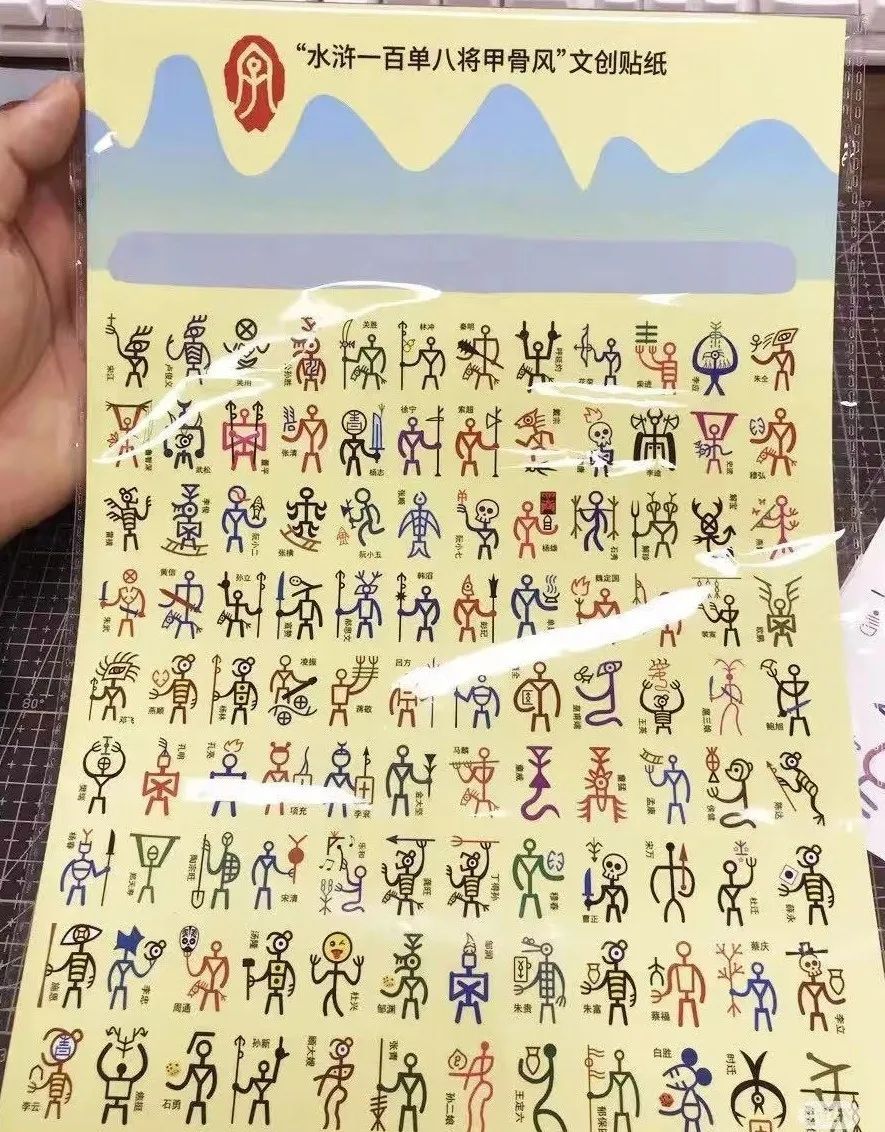 “水浒一百单八将甲骨风”文创贴纸
宋江
卢俊义
关胜
林冲
秦明
呼延灼
李应
朱仝
鲁智深
武松
董平
张清
杨志
徐宁
索超
戴宗
史进
穆弘
雷横
李俊
阮小二
张横
阮小五
张顺
阮小七
杨雄
石秀
解珍
解宝
朱武
黄信
孙立
宣赞
郝思文
韩滔
彭玘
魏定国
裴宣
欧鹏
燕顺
杨林
凌振
蒋敬
吕方
皇甫端
王英
扈三娘
鲍旭
樊瑞
孔明
孔亮
项充
金大坚
马麟
童威
童猛
孟康
侯健
陈达
杨春
郑天寿
陶宗旺
宋清
乐和
龚旺
丁得孙
穆春
宋万
杜迁
薛永
施恩
李忠
周通
汤隆
杜兴
邹渊
邹润
朱贵
朱富
蔡福
蔡庆
李立
焦挺
石勇
孙新
顾大嫂
张青
孙二娘
王定六
郁保四
时迁